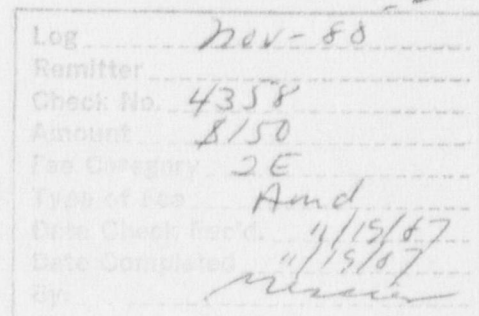 Log Nov-88
Remitter
Check No. 4358
Amount $150
Fee Category 2E
Type of Fee Amd
Date Check Rec'd. 11/19/87
Date Completed 11/19/87
By: